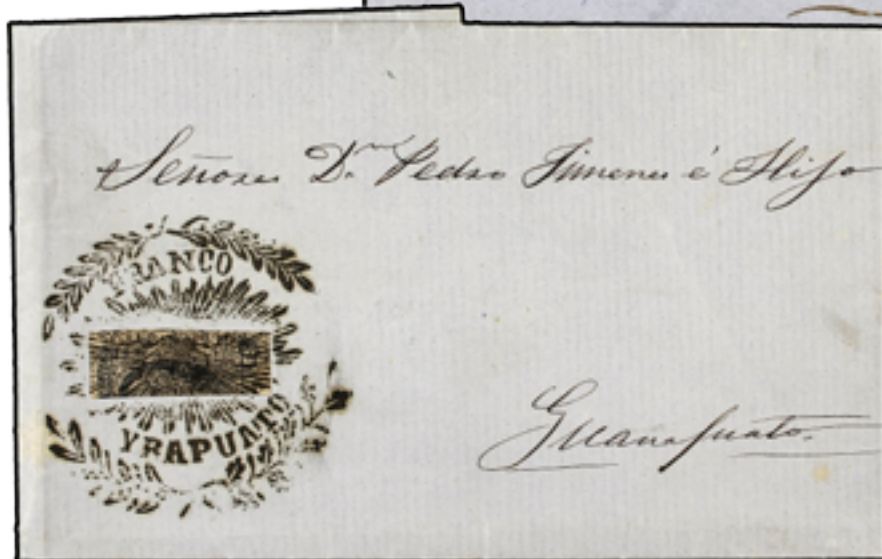 Señores D.n Pedro Jimenes é Hijo
FRANCO
YRAPUATO
Guanajuato.